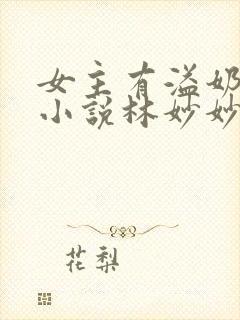 女主有溢奶
小说林妙妙
花梨